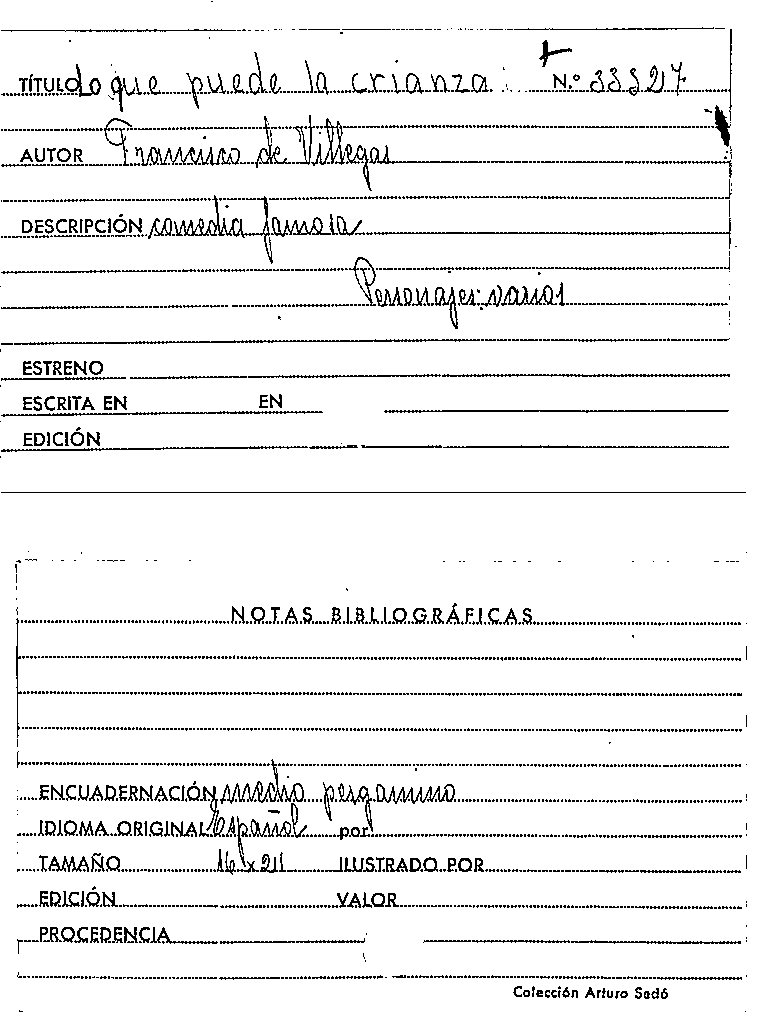 TÍTULO Lo que puede la crianza N.º 33327
AUTOR Francisco de Villegas
DESCRIPCIÓN comedia famosa
Personajes: varios
ESTRENO
ESCRITA EN EN
EDICIÓN
NOTAS BIBLIOGRÁFICAS
ENCUADERNACIÓN medio pergamino
IDIOMA ORIGINAL Español por
TAMAÑO 16 x 211 ILUSTRADO POR
EDICIÓN VALOR
PROCEDENCIA
Colección Arturo Sedó